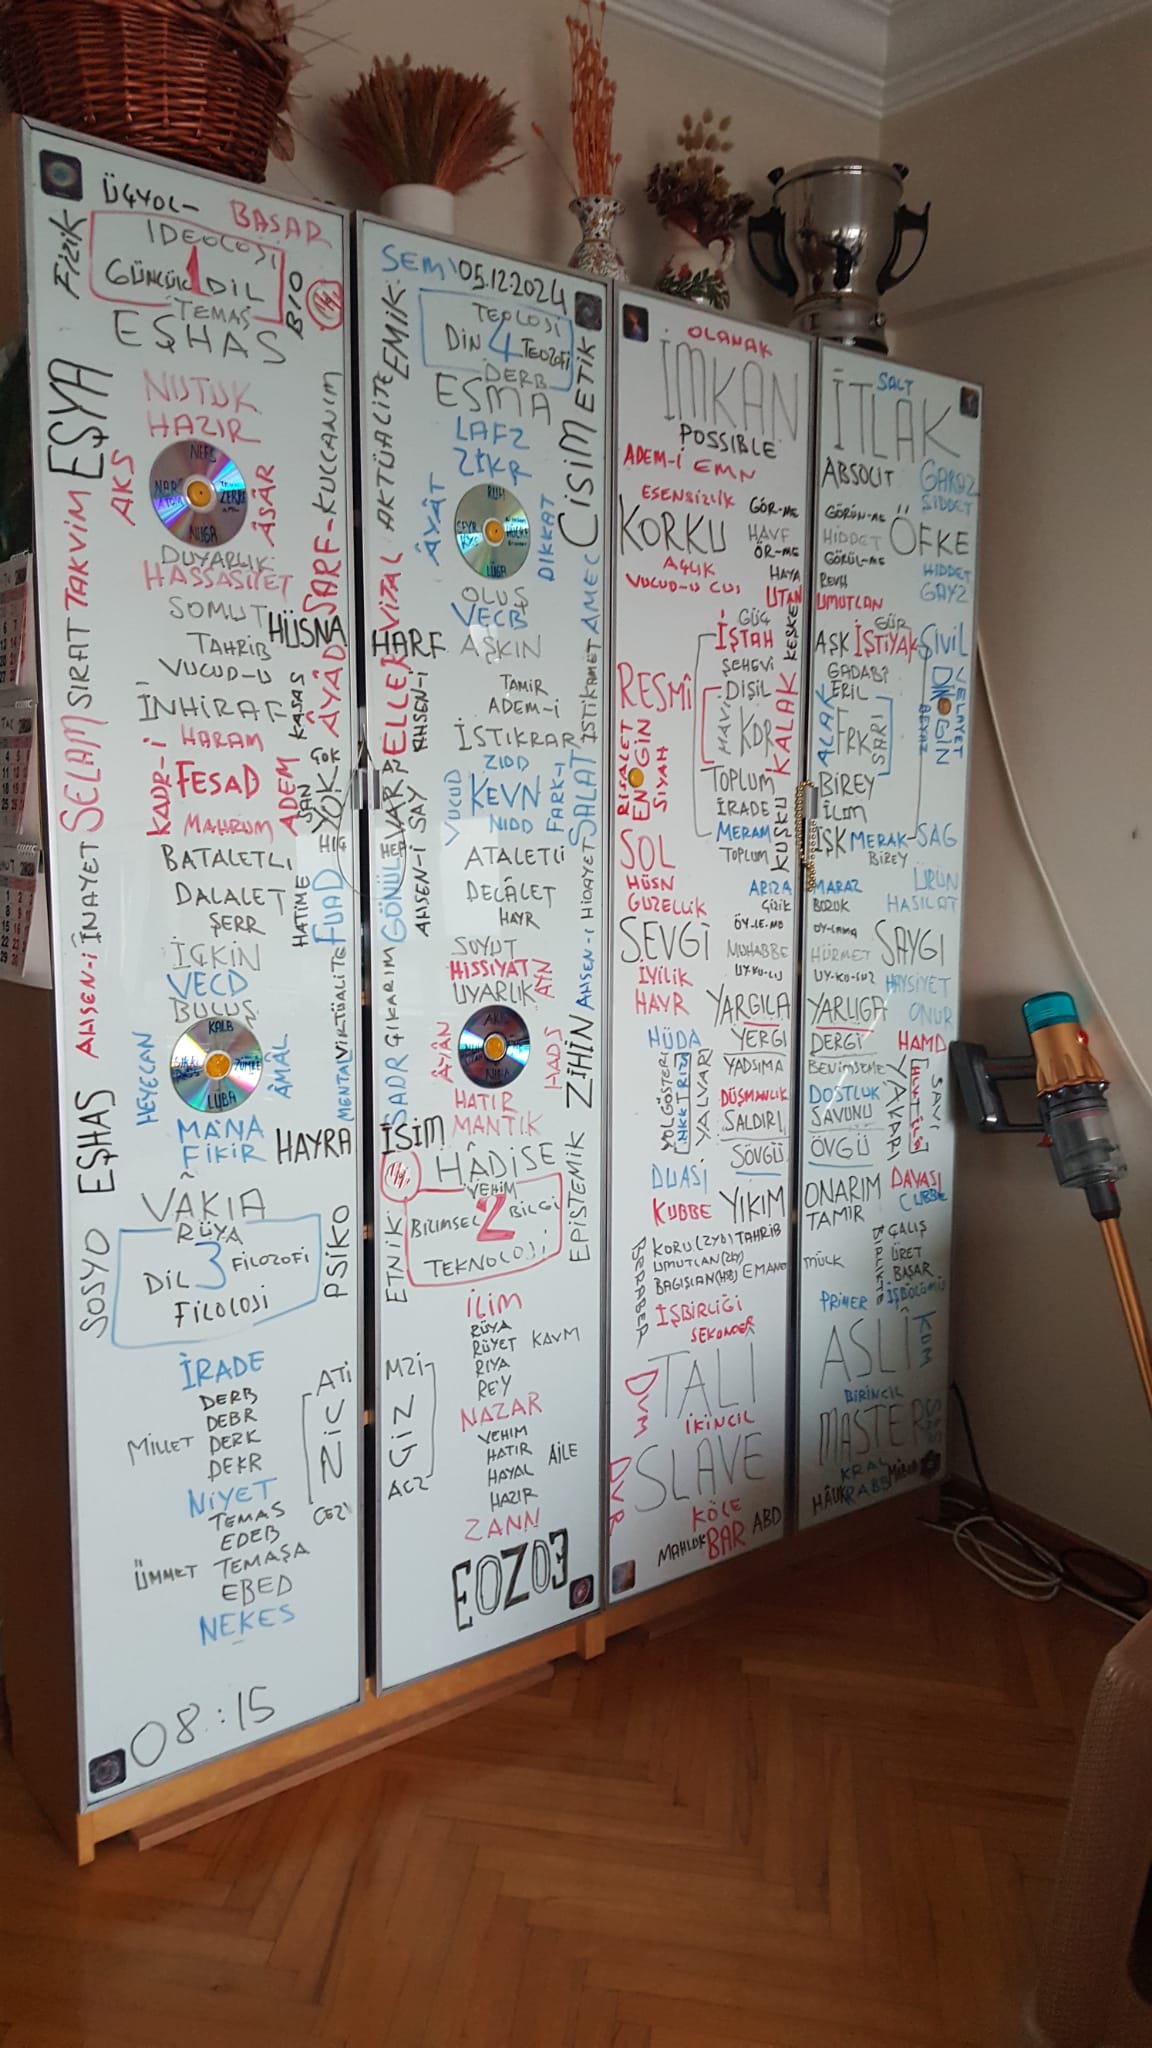 ÜÇYOL-
BASAR
IDEOLOJİ
GÜNCÜL 1 DİL
TEMAS
FİZİK
BIO
EŞHAS
EŞYA
NUTUK
HAZIR
AKS
NEFS
NUGA
ÂSÂR
DUYARLIK
HASSASİYET
SOMUT
HÜSNA
TAHRİB
VUCUD-U
İNHİRAF
KASAS
HARAM
KADR-İ
FESAD
ADEM
MAHRUM
SARF-KULLANIM
ÂYÂD
ÇOK
YOK
HİÇ
BATALETLİ
DALALET
ŞERR
HATİME
FUAD
İÇKİN
VECD
BULUŞ
KALB
ZÜMRE
LUBA
HEYECAN
ÂMÂL
MENTAL VİKTÜALİTE
MÂNA
FİKİR
HAYRA
AHSEN-İ İNAYET SELAM SIRAT TAKVİM
EŞHAS
VÂKIA
RÜYA
DİL 3 FİLOZOFİ
FİLOLOJİ
SOSYO
PSİKO
İRADE
DERB
DEBR
MİLLET DERK
DEKR
NİYET
TEMAS
EDEB
ÜMMET TEMAŞA
EBED
NEKES
ATİ
ZİC
08:15
SEM'
05.12.2024
TEOLOJİ
DİN 4 TEOZOFİ
DERB
EMİK
ETİK
ESMA
LAFZ
ZİKR
VİTAL AKTÜALİTE
ÂYÂT
RUH
LÜGA
DIKKAT
CİSİM
OLUŞ
VECB
HARF
AŞKIN
TAMİR
ADEM-İ
İSTİKRAR
ELLER
AHSEN-İ
ZIDD
VUCUD
KEVN
FARK-I
NIDD
VAR
AZ
HEP
AHSEN-İ SAY
ATALETLİ
DELÂLET
HAYR
GÖNÜL
SOYUT
HİSSİYAT
AYN
UYARLIK
AHSEN-İ HİDAYET SALAT İSTİKAMET AMEL
SADR ÇIKARIM
ÂYÂN
HADS
ZİHİN
HATIR
İSİM
MANTIK
HÂDİSE
VEHİM
BİLİMSEL 2 BİLGİ
TEKNOLOJİ
ETNİK
EPİSTEMİK
İLİM
RÜYA
RÜYET KAVM
RIYA
REY
NAZAR
VEHİM
HATIR
HAYAL AİLE
HAZIR
ZANN
MZİ
GİZ
ACZ
EOZO3
OLANAK
İMKAN
POSSIBLE
ADEM-İ EMN
ESENSİZLİK
GÖR-ME
KORKU
HAVF
ÖR-ME
AÇLIK
HAYA
VUCUD-U CUŞ
UTAN
GÜÇ
İŞTAH
KEŞKE
ŞEHEVİ
RESMİ
DİŞİL
MAVİ
KDR
KALAK
RİSALET
ENGİN
SİYAH
TOPLUM
İRADE
MERAM
TOPLUM
KUŞKU
SOL
HÜSN
GÜZELLİK
ARIZA
ÇİZİK
SEVGİ
ÖY-LE-ME
MUHABBE
UY-KU-LU
İYİLİK
HAYR
YARGILA
HÜDA
YERGİ
YOL GÖSTERİ
YALVAR
YADSIMA
DÜŞMANLIK
SALDIRI
SÖVGÜ
DUASI
KUBBE
YIKIM
KORU(ZYD) TAHRİB
UMUTLAN
BAGIŞLAN EMAN
BERABER
İŞBİRLİĞİ
SEKONDER
TALİ
İKİNCİL
DVM
SLAVE
DVR
KÖLE
MAHLUK BAR ABD
SALT
İTLAK
ABSOLUT
GARAZ
ŞİDDET
GÖRÜN-ME
HİDDET
ÖFKE
GÖRÜL-ME
HİDDET
REVH
GAYZ
UMUTLAN
GÜR
AŞK İŞTİYAK
SİVİL
GADABİ
ERİL
ALAK
FRK
SARI
BEYAZ
VELAYET
BİREY
İLİM
IŞK MERAK
SAĞ
BİREY
MARAZ
ÜRÜN
BOZUK
HASILAT
SAYGI
HÜRMET
UY-KU-SUZ
HAYSİYET
YARLIGA
ONUR
DERGİ
HAMD
BENİMSEME
DOSTLUK
SAVUNU
YAKARI
SAVI
ÖVGÜ
ONARIM
DAVASI
TAMİR
CÜBBE
ÇALIŞ
MÜLK
BİRLİKTE
ÜRET
BAŞAR
PRİMER
İŞBÖLÜMÜ
ASLİ
KDM
BİRİNCİL
MASTER
KRAL
RABB